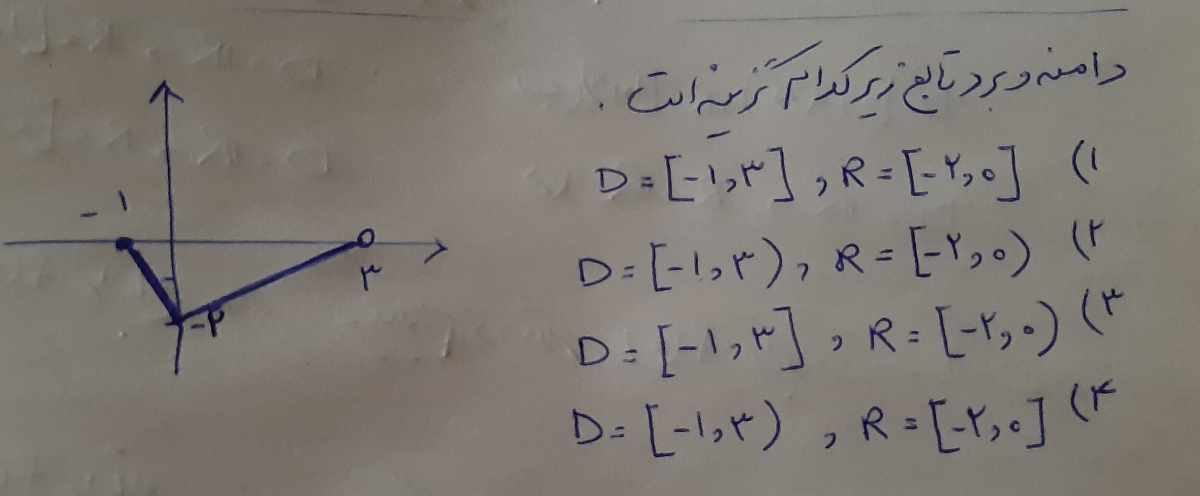 دامنه و برد تابع زیر کدام گزینه است .
۱) D = [-۱, ۳] , R = [-۲, ۰]
۲) D = [-۱, ۳) , R = [-۲, ۰)
۳) D = [-۱, ۳] , R = [-۲, ۰)
۴) D = [-۱, ۳) , R = [-۲, ۰]
-۱
۳
-۲